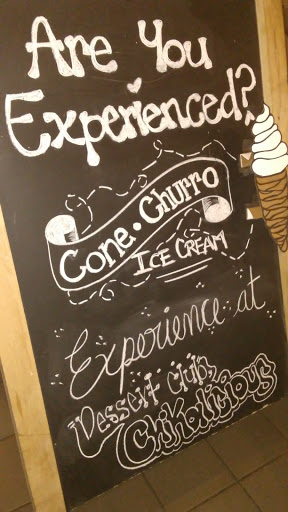 Are You
Experienced?
Cone • Churro
ICE CREAM
Experience at
Dessert Club,
ChiKalicious